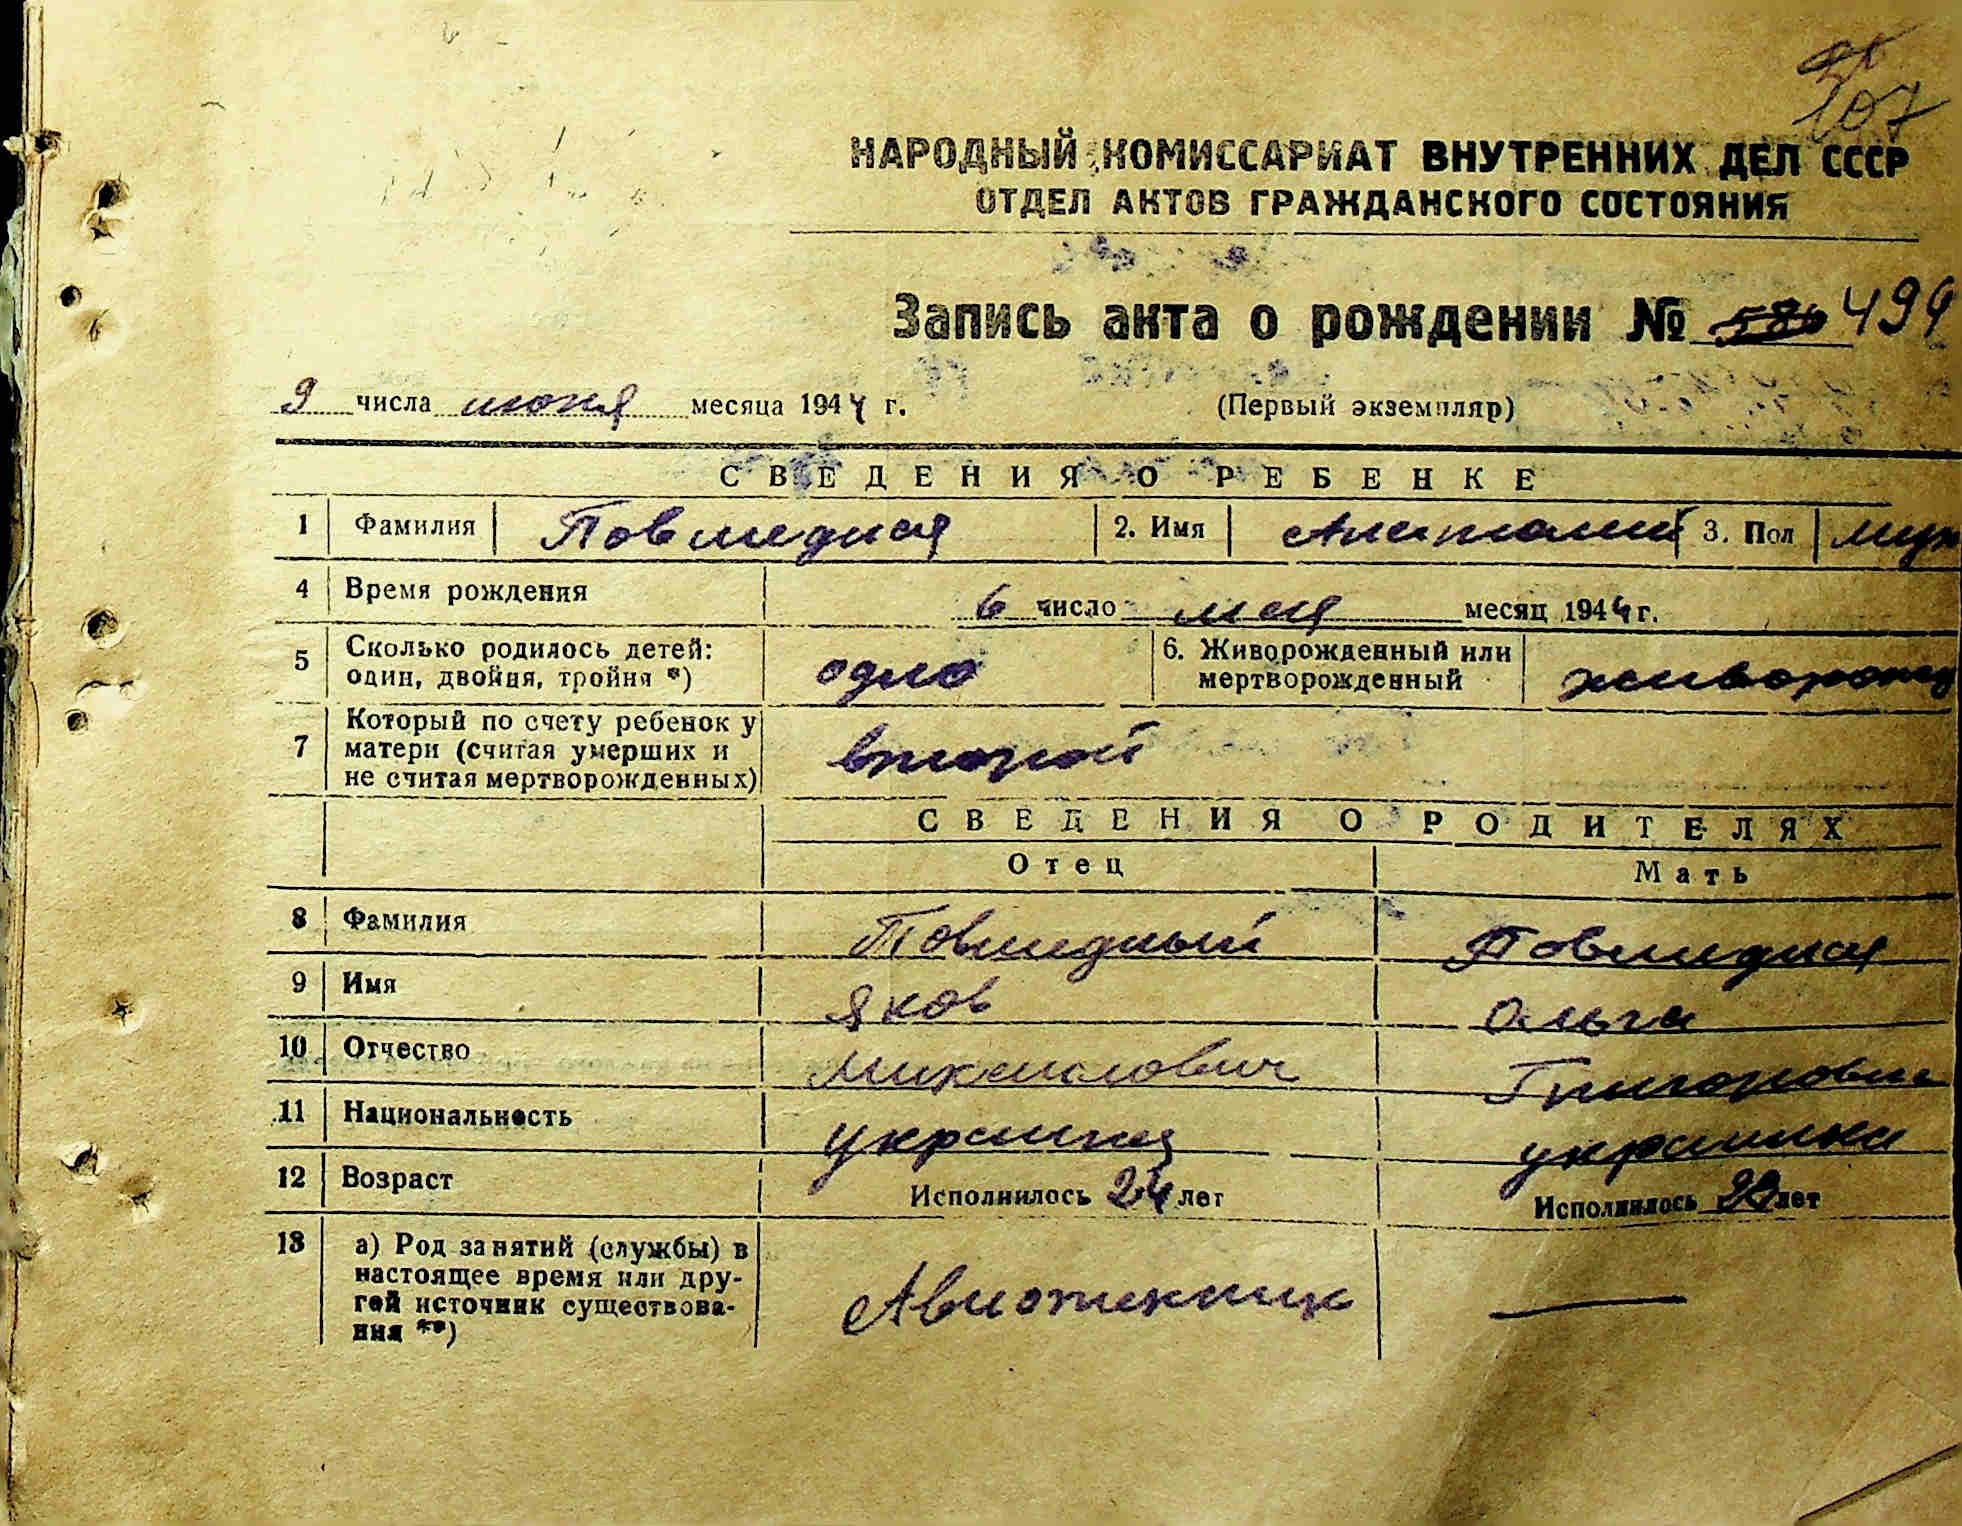 107
НАРОДНЫЙ КОМИССАРИАТ ВНУТРЕННИХ ДЕЛ СССР
ОТДЕЛ АКТОВ ГРАЖДАНСКОГО СОСТОЯНИЯ
Запись акта о рождении № 499
9 числа июня месяца 1944 г. (Первый экземпляр)
СВЕДЕНИЯ О РЕБЕНКЕ
1 Фамилия Повшедная 2. Имя Анатолий 3. Пол муж
4 Время рождения 6 число мая месяц 1944 г.
5 Сколько родилось детей: один, двойня, тройня *) одно 6. Живорожденный или мертворожденный живорожд
7 Который по счету ребенок у матери (считая умерших и не считая мертворожденных) второй
СВЕДЕНИЯ О РОДИТЕЛЯХ
Отец Мать
8 Фамилия Повшедный Повшедная
9 Имя Яков Ольга
10 Отчество Михайлович Григоровна
11 Национальность украинец украинка
12 Возраст Исполнилось 24 лет Исполнилось лет
13 а) Род занятий (службы) в настоящее время или другой источник существования **) Авиотехник —